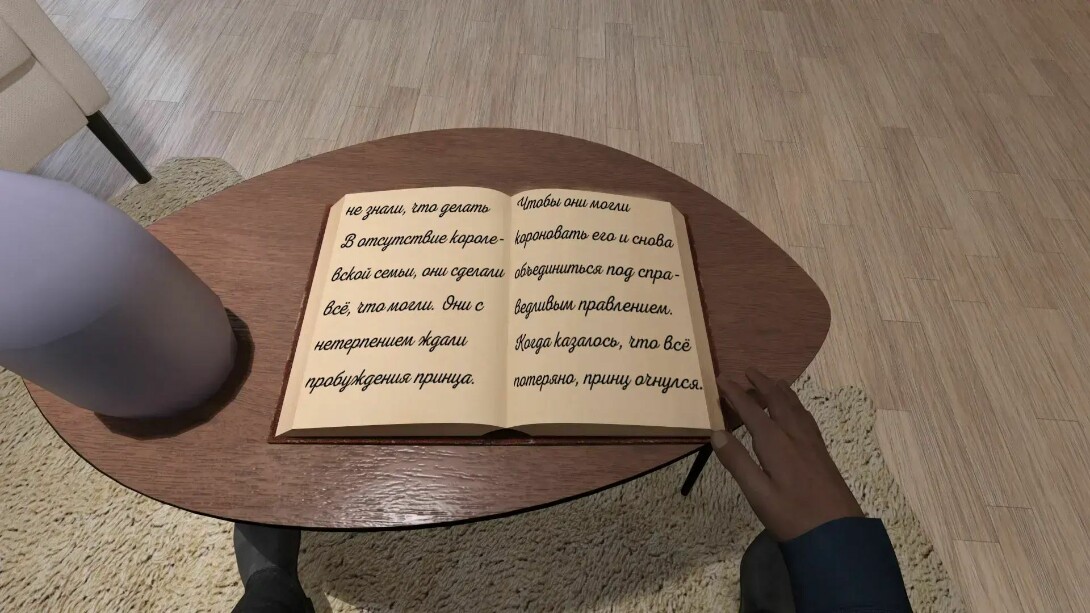 не знали, что делать
В отсутствие короле-
вской семьи, они сделали
всё, что могли. Они с
нетерпением ждали
пробуждения принца.
Чтобы они могли
короновать его и снова
объединиться под спра-
ведливым правлением.
Когда казалось, что всё
потеряно, принц очнулся.